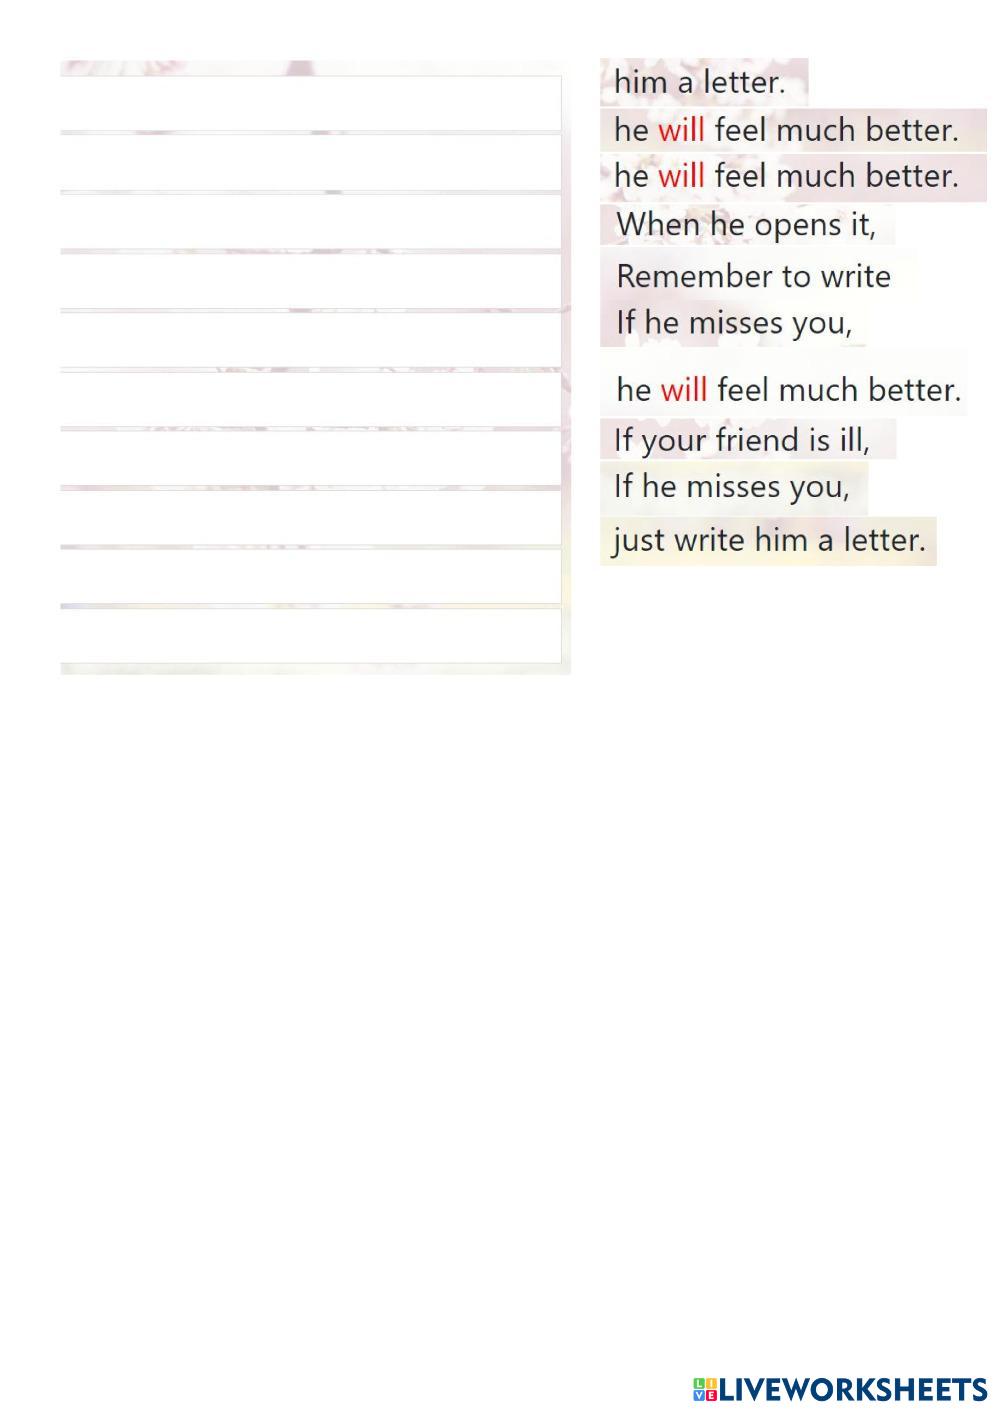 him a letter.
he will feel much better.
he will feel much better.
When he opens it,
Remember to write
If he misses you,
he will feel much better.
If your friend is ill,
If he misses you,
just write him a letter.
LIVE LIVEWORKSHEETS